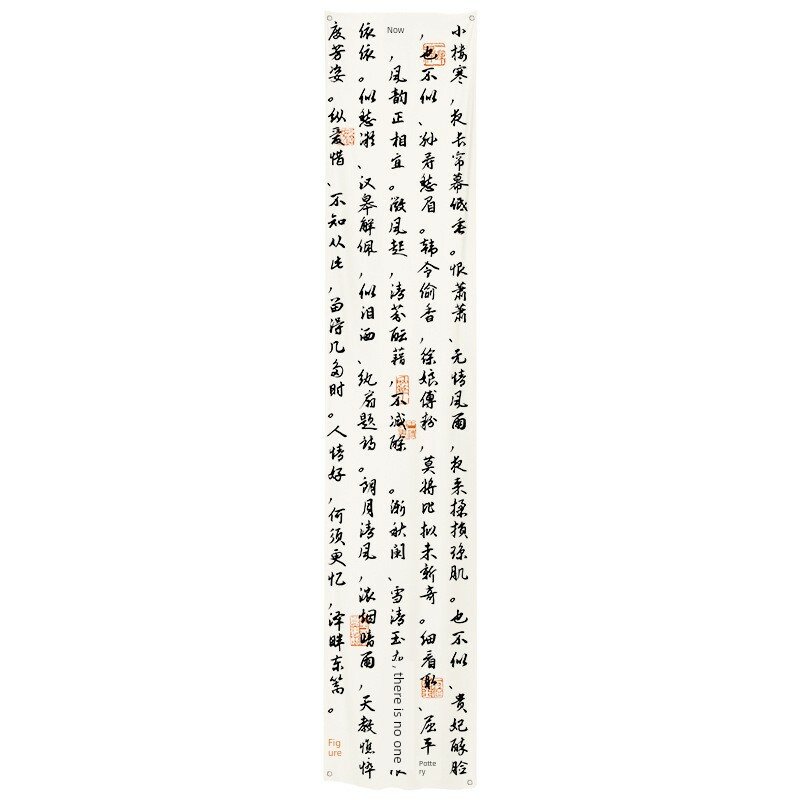 小楼寒，夜长帘幕低垂。恨萧萧、无情风雨，夜来揉损琼肌。也不似、贵妃醉脸
，也不似、孙寿愁眉。韩令偷香，徐娘傅粉，莫将比拟未新奇。细看取、屈平 Pottery
Now ，风韵正相宜。微风起，清芬酝藉，不减酴 。渐秋阑、雪清玉 , there is no one
依依。似愁凝、汉皋解佩，似泪洒、纨扇题诗。朗月清风，浓烟暗雨，天教憔悴
度芳姿。纵爱惜、不知从此，留得几多时。人情好，何须更忆，泽畔东篱。
Figure